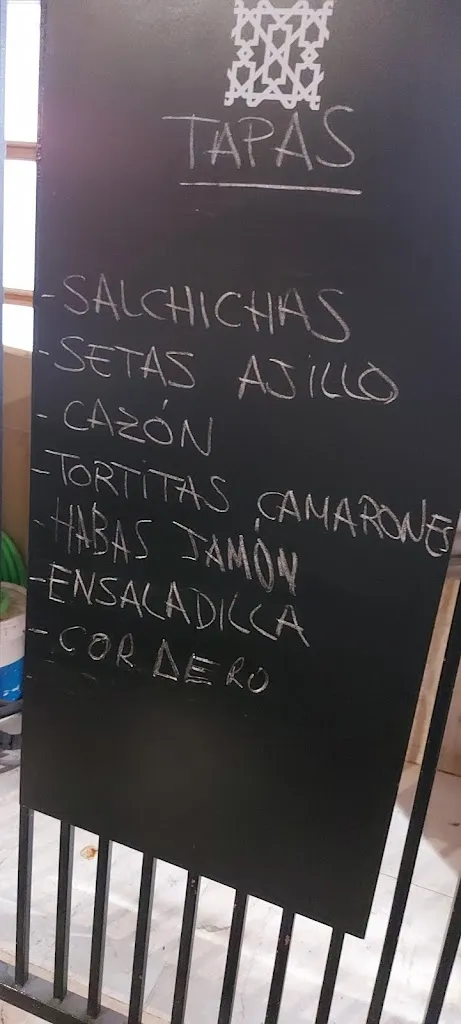 TAPAS
- SALCHICHAS
- SETAS AJILLO
- CAZÓN
- TORTITAS CAMARONES
- HABAS JAMÓN
- ENSALADILLA
- CORDERO